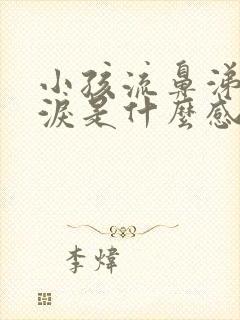 小孩流鼻涕
淚是什麼感
李煒